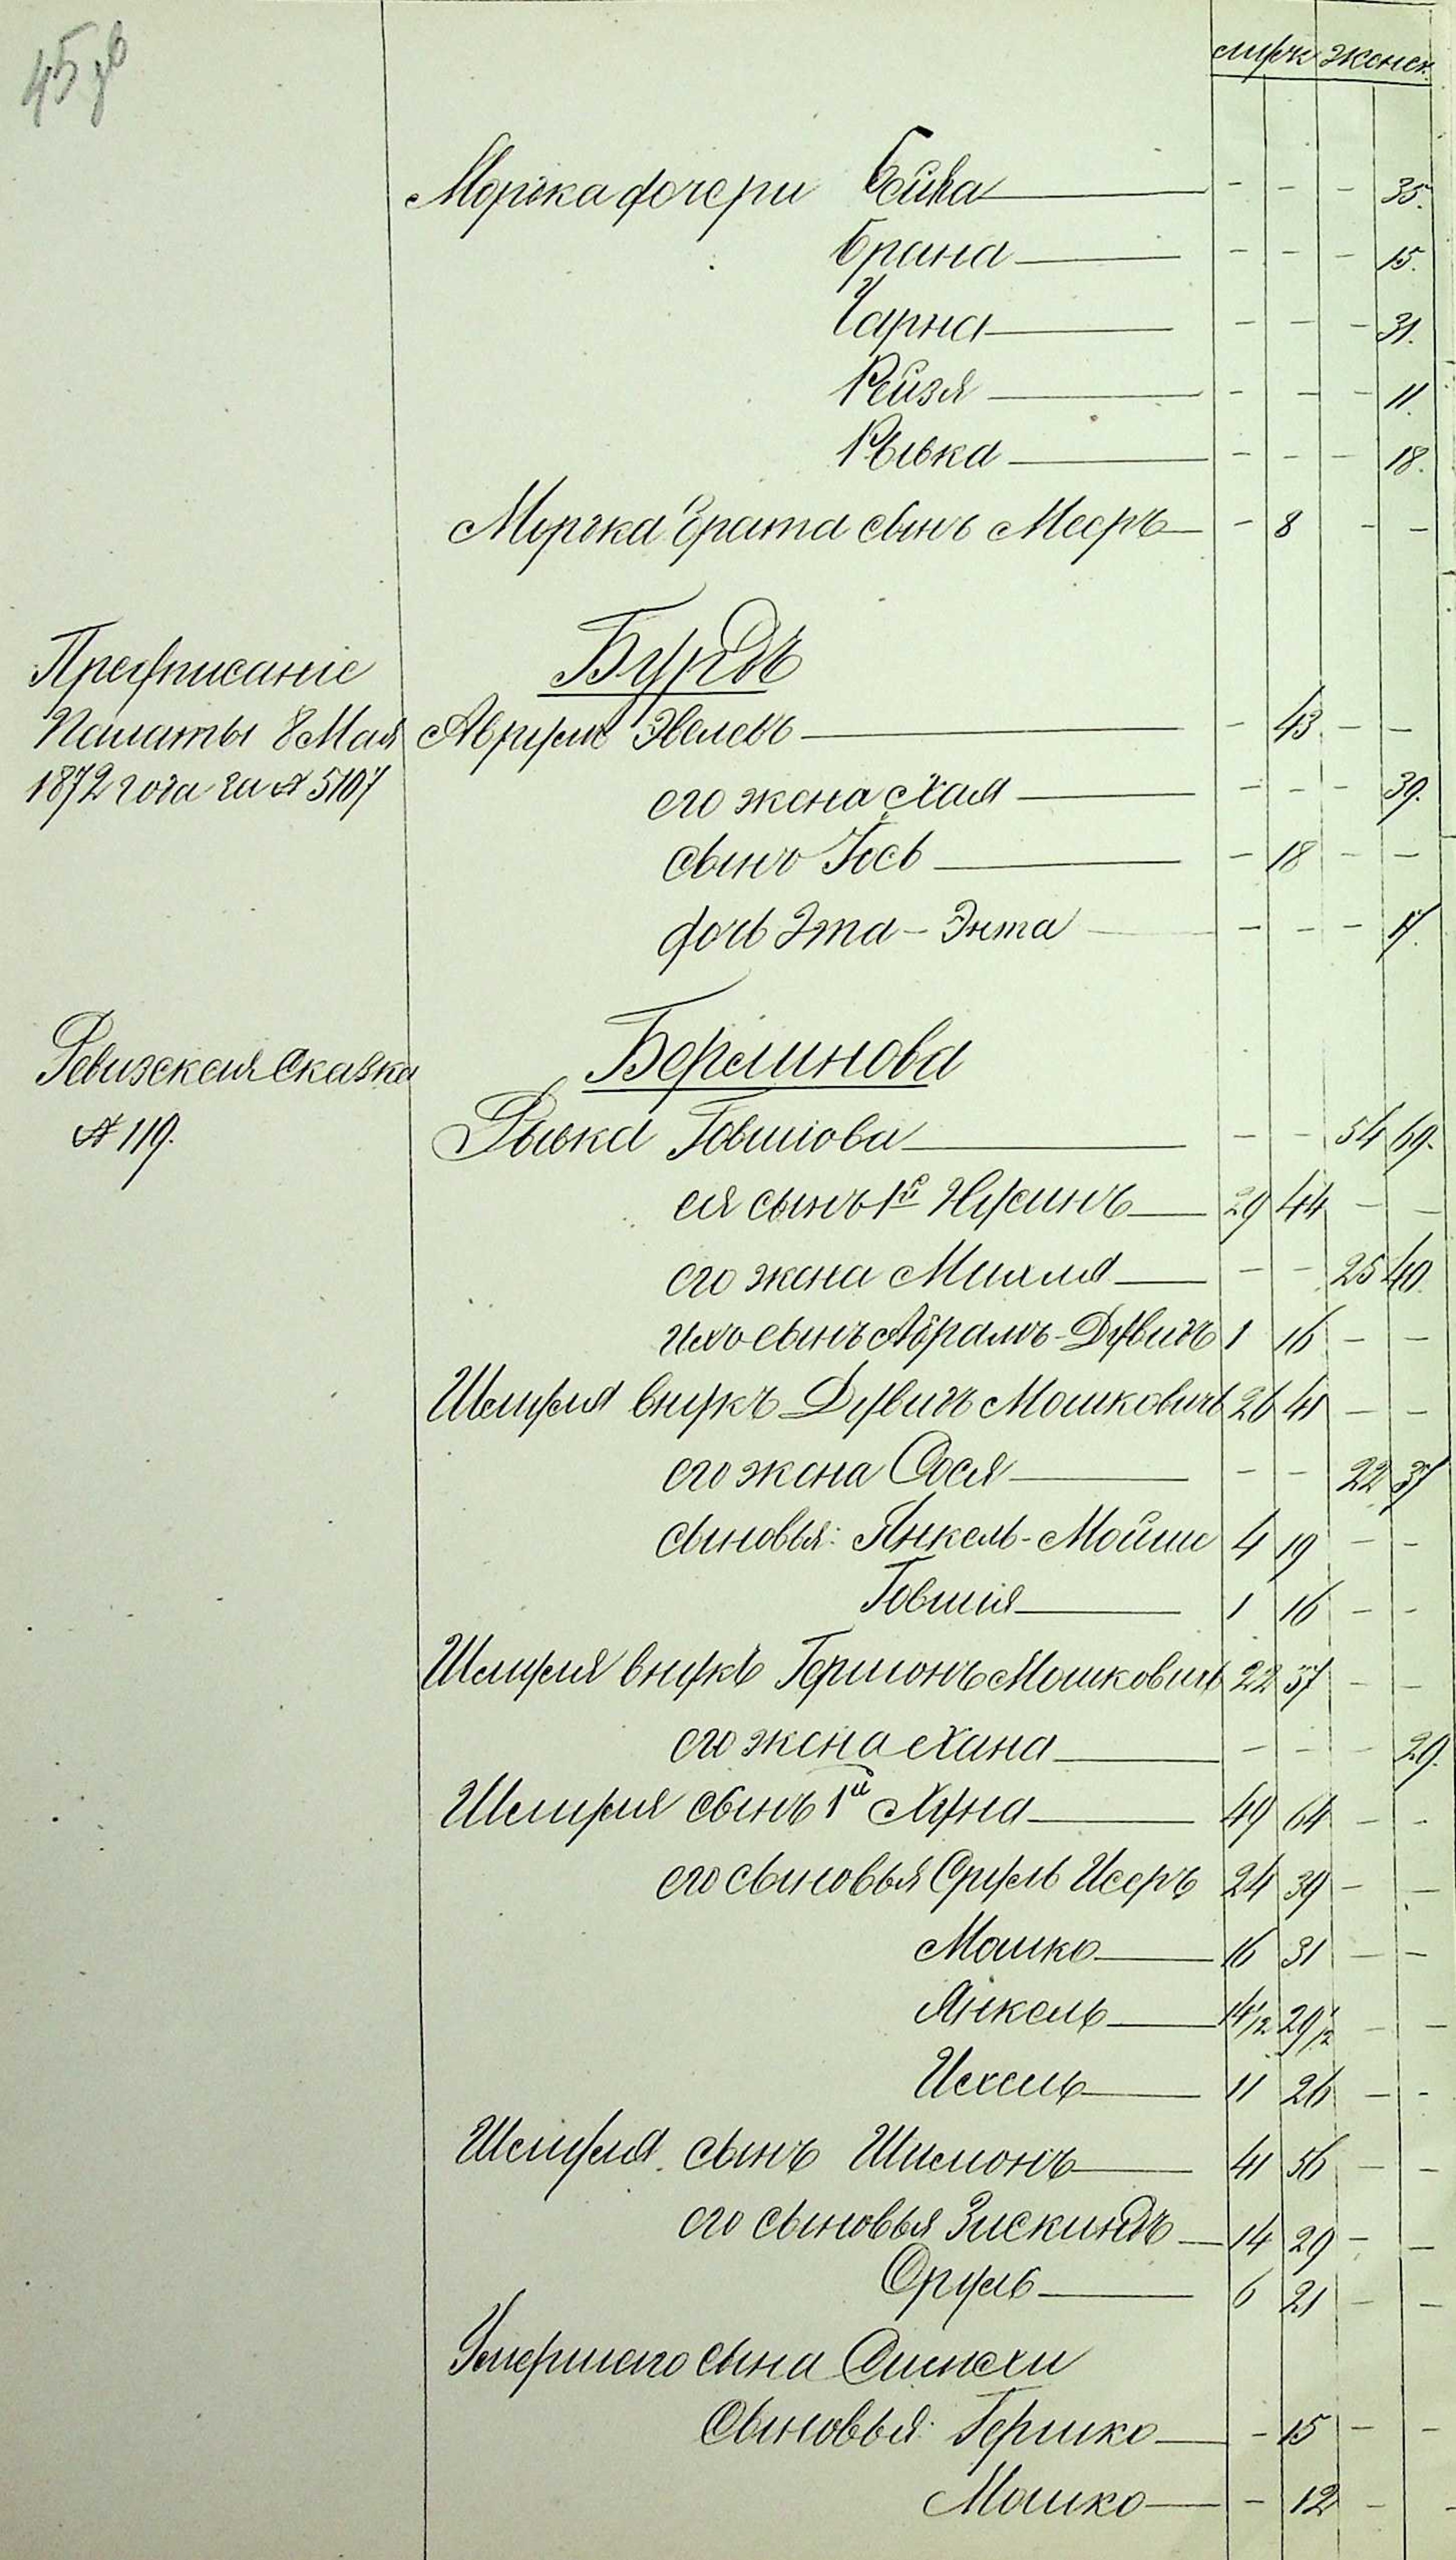 45 об
мужск женск.
Мордка дочери Бейла - - - 35.
Брана - - - 15.
Чарна - - - 31.
Рейзя - - - 11.
Рывка - - - 18.
Мордка брата сынъ Мееръ - 8 - -
Предписаніе
Палаты 8 Мая
1872 года за № 5107
Бурдъ
Аврумъ Эвелевъ - 43 - -
его жена Хая - - - 39.
сынъ Іось - 18 - -
дочь Эта-Энта - - - 17.
Ревизская Сказка
№ 119.
Берлинова
Рывка Говшіова - - 54 69.
ея сынъ 1й Нусинъ 29 44 - -
его жена Михля - - 25 40.
ихъ сынъ Абрамъ-Дувидъ 1 16 - -
Шлиума внукъ Дувидъ Мошковичъ 26 41 - -
его жена Сося - - 22 37
сыновья: Янкель-Мойше 4 19 - -
Говшія 1 16 - -
внукъ Гершонъ Мошковичъ 22 37 - -
его жена Хана - - - 29.
сынъ 1й Хуна 49 64 - -
его сыновья Сруль Исеръ 24 39 - -
Мошко 16 31 - -
Янкель 14½ 29½ - -
Ихель 11 26 - -
сынъ Шимонъ 41 56 - -
его сыновья Зискиндъ 14 29 - -
Сруль 6 21 - -
Умершаго сына Симхи
Сыновья: Гершко - 15 - -
Мошко - 12 - -